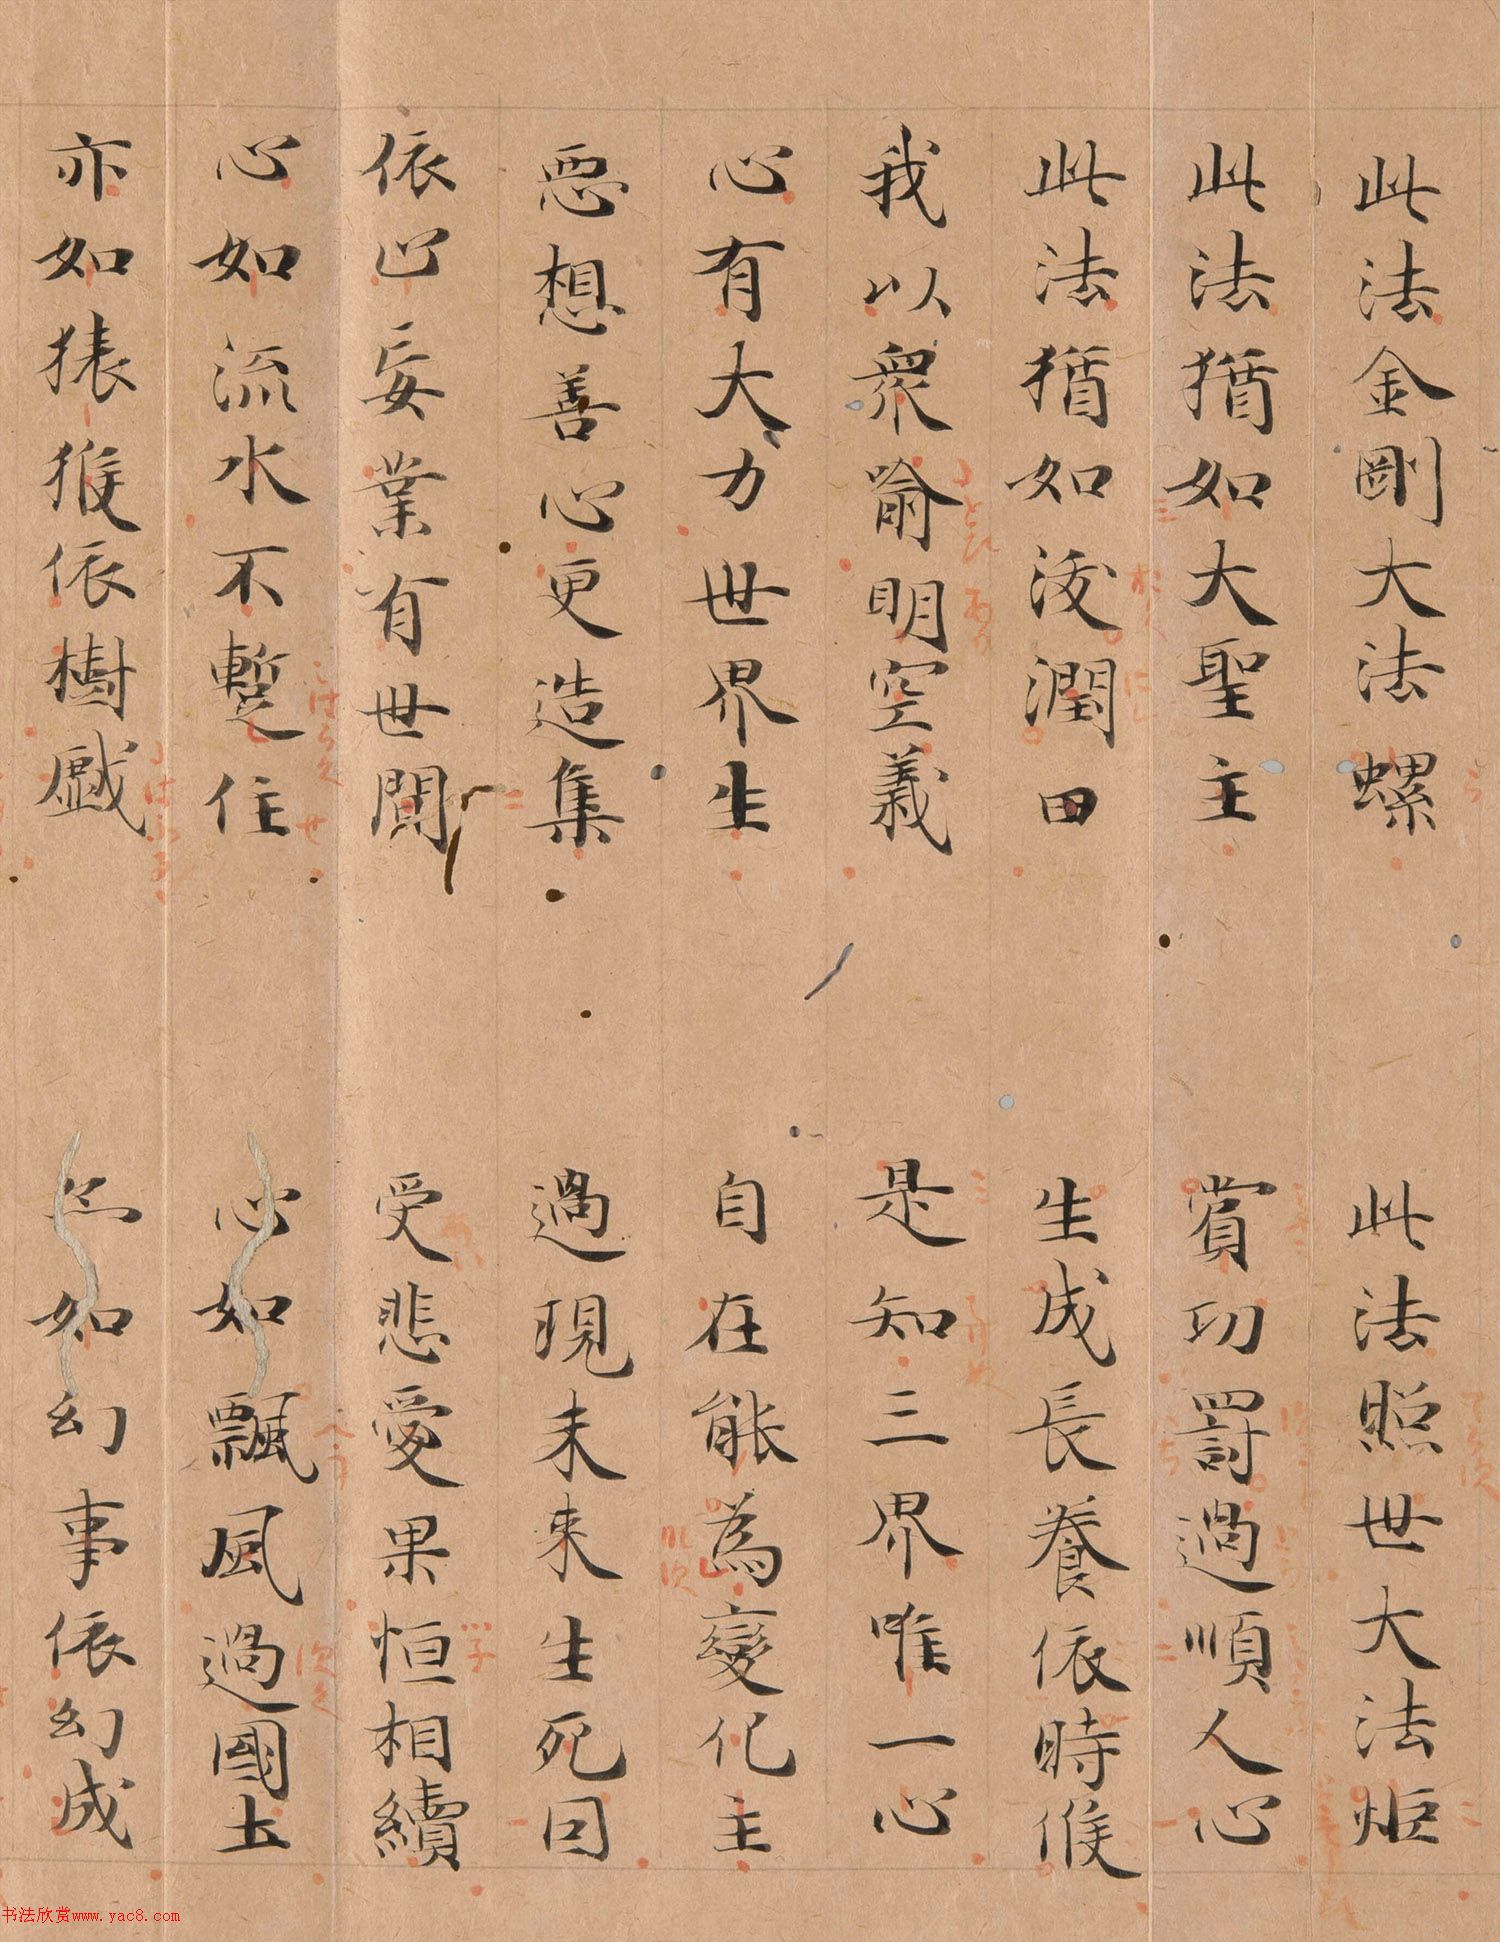 此法金剛大法螺 此法照世大法炬
此法猶如大聖主 賞功罰過順人心
此法猶如沃潤田 生成長養依時候
我以衆喻明空義 是知三界唯一心
心有大力世界生 自在能為變化主
惡想善心更造集 過現未来生死因
依止妄業有世間 受悲愛果恒相續
心如流水不暫住 心如飄風過國土
亦如猨猴依樹戲 亦如幻事依幻成
书法欣赏www.yac8.com